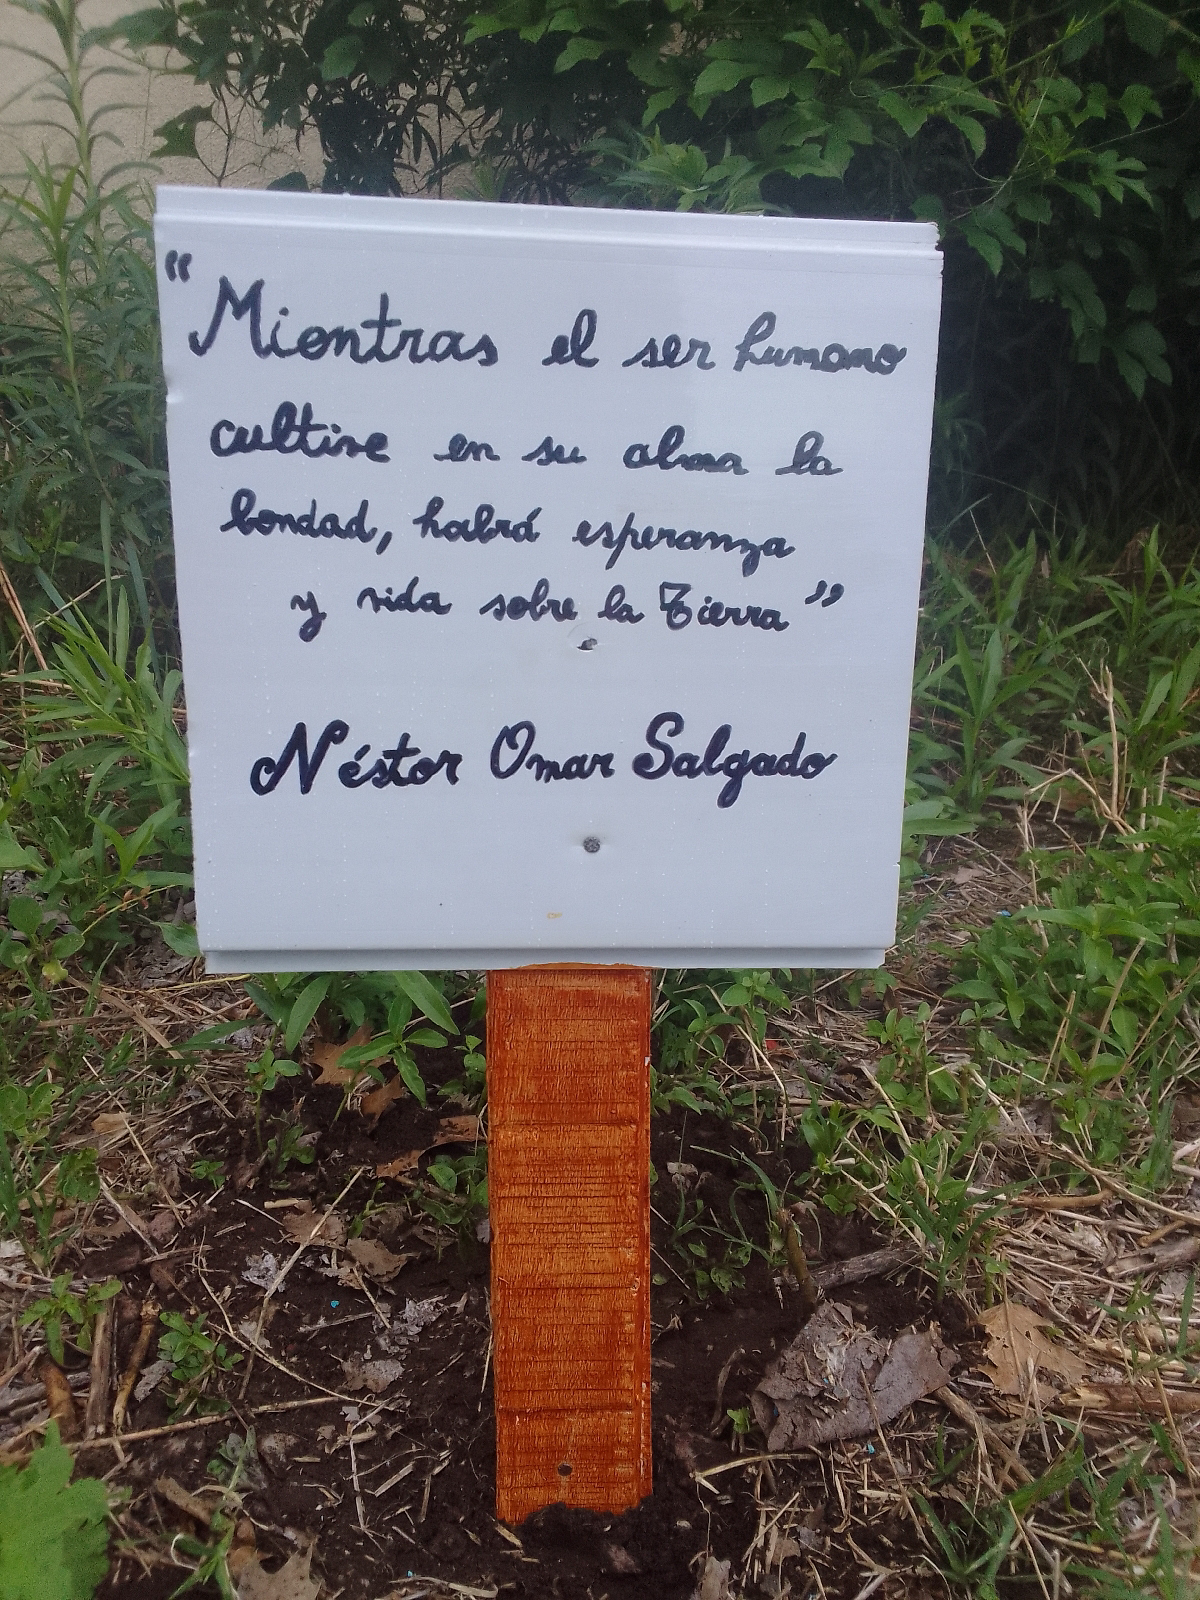 "Mientras el ser humano
cultive en su alma la
bondad, habrá esperanza
y vida sobre la Tierra"
Néstor Omar Salgado